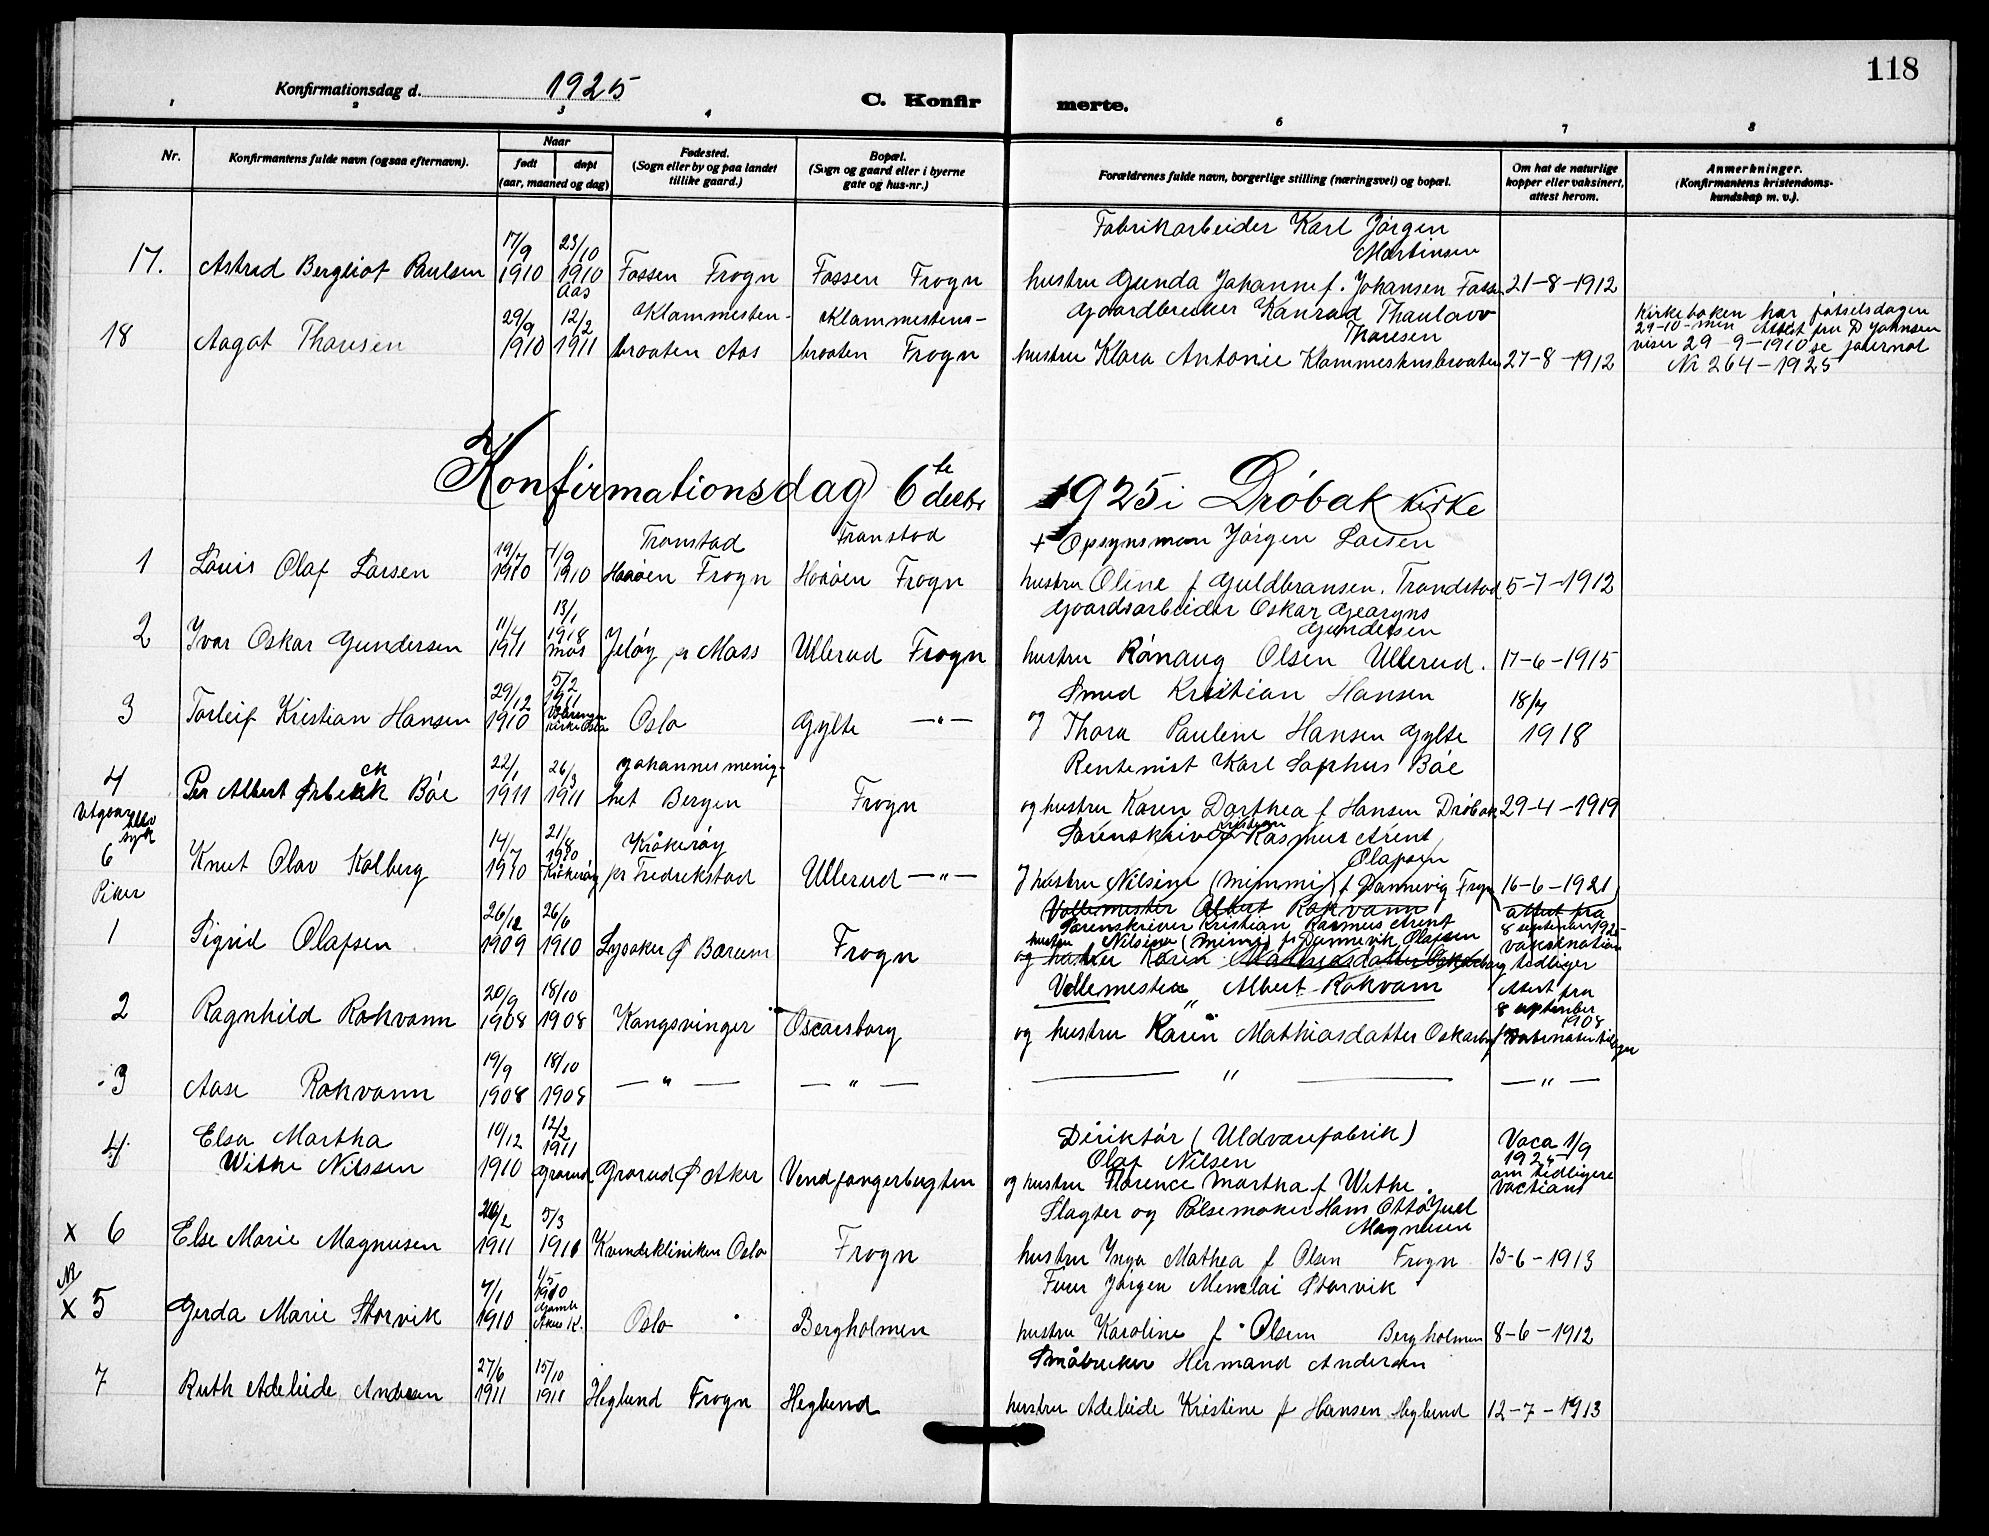 118
Konfirmationsdag d. 1925
C. Konfir merte.
1 2 3 4 6 7 8
Nr.
Konfirmantens fulde navn (ogsaa efternavn).
Naar
født døpt
(aar, maaned og dag)
Fødested.
(Sogn eller by og paa landet
tillike gaard.)
Bopæl.
(Sogn og gaard eller i byerne
gate og hus-nr.)
Forældrenes fulde navn, borgerlige stilling (næringsvei) og bopæl.
Om hat de naturlige
kopper eller vaksinert,
attest herom.
Anmerkninger.
(Konfirmantens kristendoms-
kundskap m. v.).
Fabrikarbeider Karl Jørgen
17/9 23/10 Martinsen
17. Astrid Bergliot Paulsen 1910 1910 Fossen Frogn Fossen Frogn hustru Gunda Johanne f. Johansen Fossen 21-8-1912
Aas
29/9 12/2 Klammesten- Klammestens- Gaardbruker Konrad Thaulow Kirkeboken har fødselsdagen
Thoresen 29-10- men Attest fra D Johnsen
18 Aagot Thoresen 1910 1911 braaten Aas braaten Frogn hustru Klara Antonie Klammestensbraaten 27-8-1912 viser 29-9-1910 se journal
Nr 264-1925
Konfirmationsdag 6te decbr 1925 i Drøbak kirke
19/7 4/9 Tronstad Transtad + Opsynsman Jørgen Larsen
1 Louis Olaf Larsen 1910 1910 Haaøen Frogn Haaøen Frogn hustru Oline f Guldbransen. Trandstad 5-7-1912
11/7 13/1 Gaardsarbeider Oskar Georgius
1918 Gundersen
2 Ivar Oskar Gundersen 1911 Mos Jeløy pr Moss Ullerud Frogn hustru Rønaug Olsen Ullerud. 17-6-1915
29/12 5/2 Smed Kristian Hansen 18/7
1911
3 Torleif Kristian Hansen 1910 Vålerengen kirke Oslo Oslo Gylte —"— og Thora Pauline Hansen Gylte 1918
22/1 26/3 Johannes menig- Rentenist Karl Sophus Bøe
4 Per Albert Ørbeck Bøe 1911 1911 het Bergen Frogn og hustru Karen Dorthea f Hansen Drøbak 29-4-1919
Utgaar blev syk
14/7 21/8 Kråkerøy Sorenskriver Kristian Rasmus Arent
1910 Olafsen
6 Knut Olav Kolberg 1910 Kråkerøy pr Fredrekstad Ullerud —"— hustru Nilsine (Mimmi) f Dannevig Frogn 16-6-1921
Piker
26/12 26/6 Vollemester Albert Rokvam attest fra
Sorenskriver Kristian Rasmus Arent 8 september 1925
1 Sigrid Olafsen 1909 1910 Lysaker Ø Bærum Frogn hustru Nilsine (Mimi) f. Dannevik Olafsen vaksination
og hustru Karen Mathiasdatter Oskarborg tidliger
20/9 18/10 Vollemester Albert Rokvam Attest fra
8 september
1908
2 Ragnhild Rokvam 1908 1908 Kongsvinger Oscarsborg og hustru Karen Mathiasdatter Oskarborg
19/9 18/10
3 Aase Rokvam 1908 1908 —"— —"— —"— —"—
Elsa Martha 10/12 12/2 Diriktør (Uldvarefabrik) Vaca 1/9
1911 Olaf Nilsen 1925
4 Withe Nilssen 1910 Grorud Grorud Ø Aker Vendfangerbugten og hustru Florence Martha f Withe. om tidligere
Slagter og Pølsemaker Hans Otto Juel
20/2 5/3 Magnusen
x 6 Else Marie Magnusen 1911 1911 Kvindekliniken Oslo Frogn hustru Inga Mathea f Olsen Frogn 13-6-1913
NB 4/1 1/5 Fører Jørgen Menelai Storvik
1910
x 5 Gerda Marie Storvik 1910 Gamle Aker K. Oslo Bergholmen hustru Karoline f Olsen Bergholmen 8-6-1912
27/6 15/10 Småbruker Hermand Andersen
7 Ruth Adeleide Andersen 1911 1911 Heglund Frogn Heglund hustru Adeleide Kristine f Hansen Heglund 12-7-1913